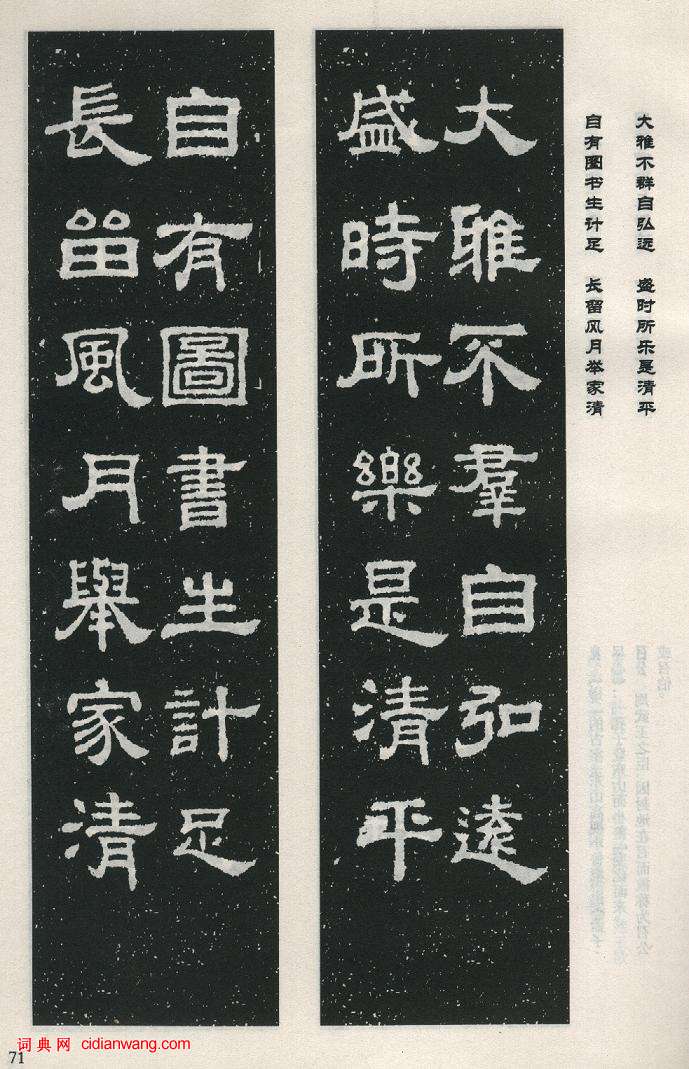 大雅不群自弘远 盛时所乐是清平
自有图书生计足 长留风月举家清
大雅不羣自弘遠
盛時所樂是清平
自有圖書生計足
長留風月舉家清
71
词典网 cidianwang.com